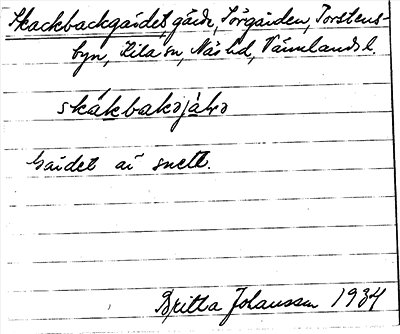 Skackbackgärdet, gärde, Sörgården, Torstens-
byn, Kila sn, Näs hd, Värmlands l.
skákbakəjáłrə
Gärdet är snett.
Britta Johansson 1934